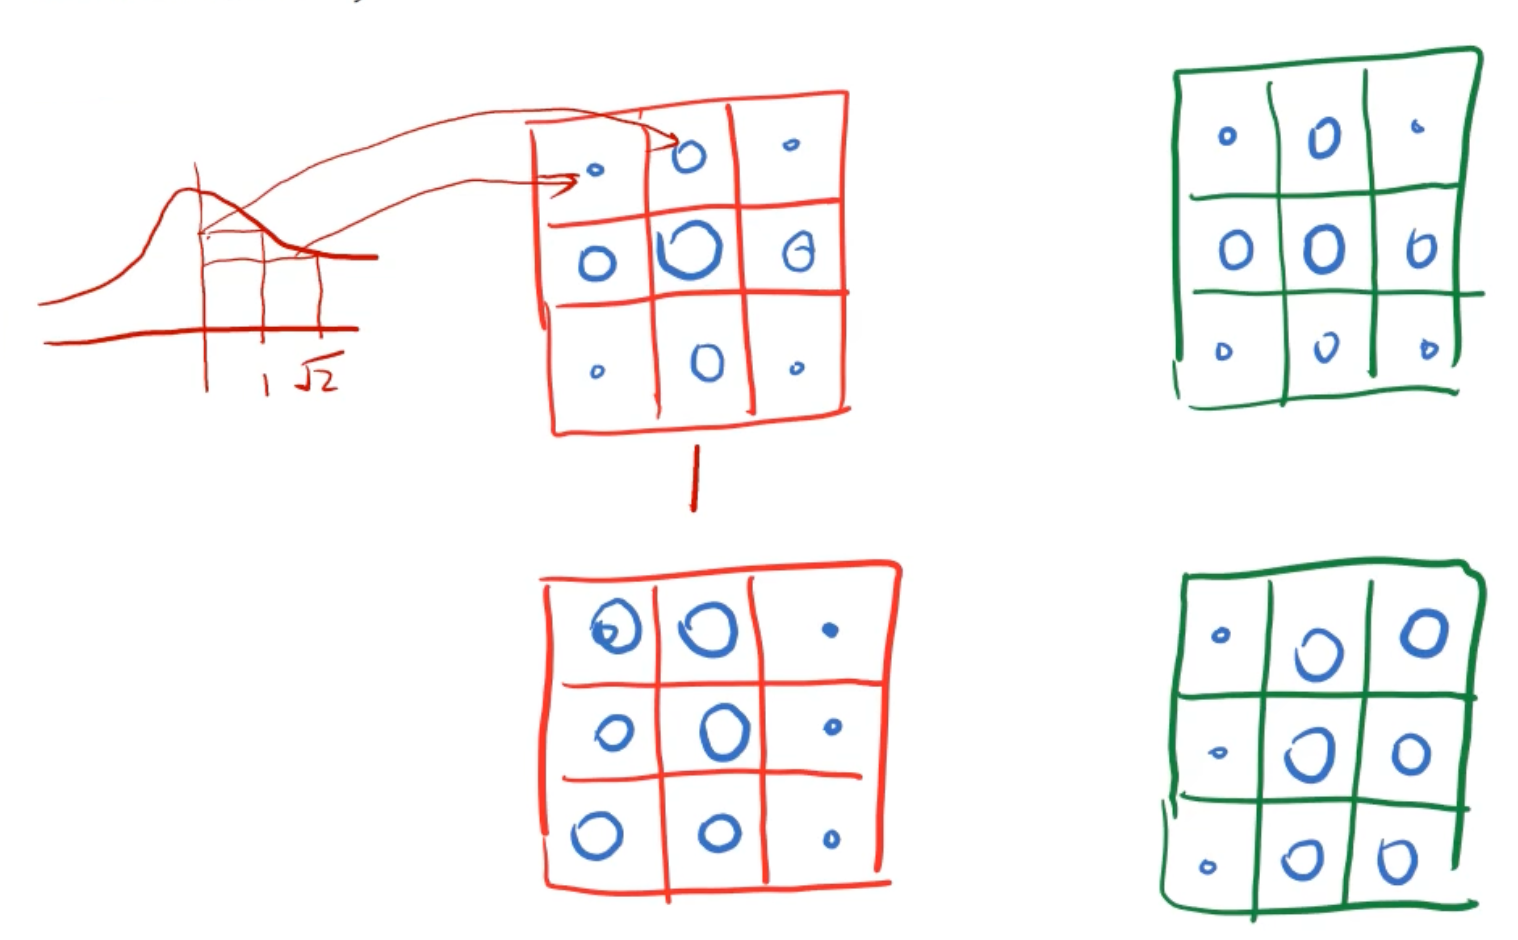 1 √2